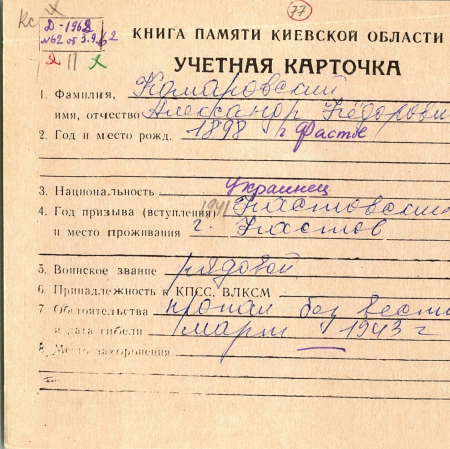 77
Д-1968
№62 от 3.9.62
Я П Х
КНИГА ПАМЯТИ КИЕВСКОЙ ОБЛАСТИ
УЧЕТНАЯ КАРТОЧКА
1. Фамилия, Комаровский
имя, отчество Александр Фёдорови
2. Год и место рожд. 1898 г Фастов
3. Национальность украинец
4. Год призыва (вступления) 1941 Фастовский
и место проживания г. Фастов
5. Воинское звание рядовой
6. Принадлежность к КПСС, ВЛКСМ
7. Обстоятельства пропал без вести
и дата гибели март 1943 г
8. Место захоронения —